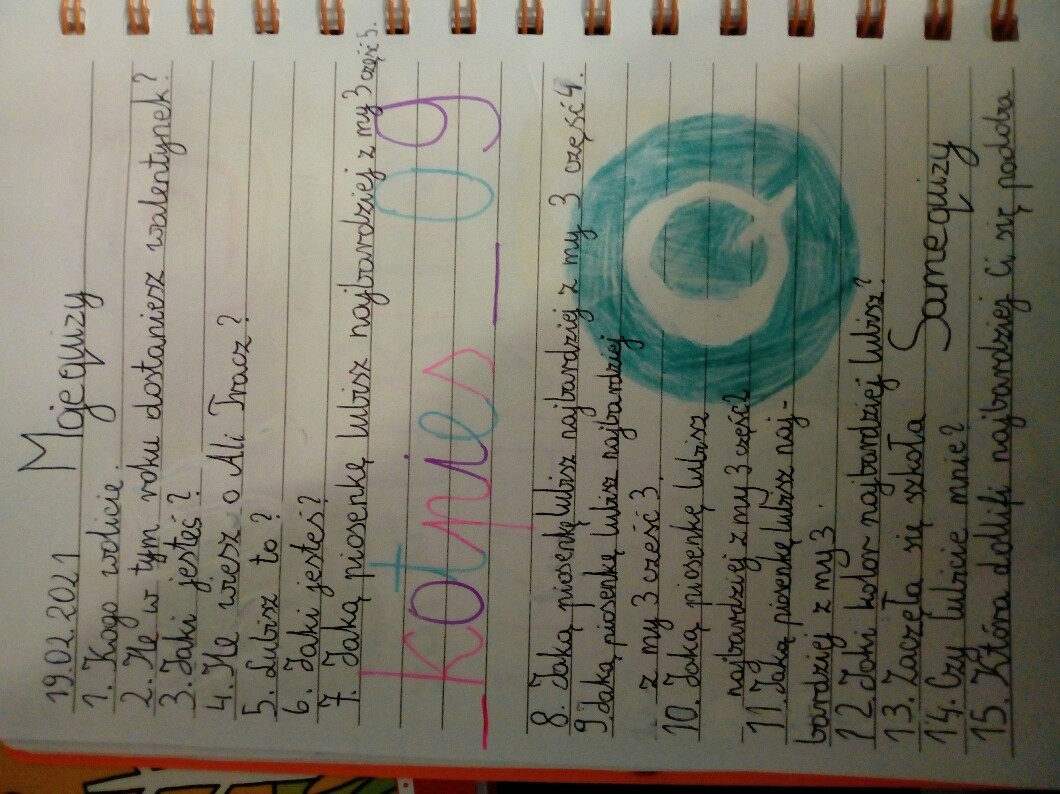 19.02.2021 Moje quizy
1. Kogo wolicie.
2. Ile w tym roku dostaniesz walentynek?
3. Jaki jesteś?
4. Ile wiesz o Ali Tracz?
5. Lubisz to?
6. Jaki jesteś?
7. Jaką piosenkę lubisz najbardziej z my 3 część 5.
_kotpies_09
8. Jaką piosenkę lubisz najbardziej z my 3 część 4.
9. Jaką piosenkę lubisz najbardziej
z my 3 cześć 3.
10. Jaką piosenkę lubisz
najbardziej z my 3 część 2
11. Jaką piosenkę lubisz naj-
bardziej z my 3.
12. Jaki kolor najbardziej lubisz?
13. Zaczęła się szkoła
14. Czy lubicie mnie?
Samequizy
15. Która dollifi najbardziej Ci się podoba
Q